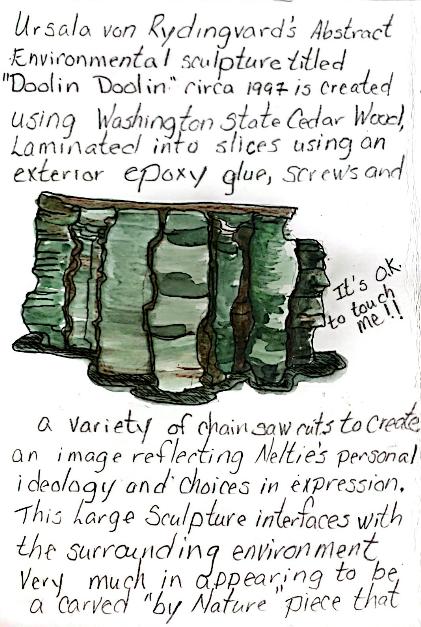 Ursala von Rydingvard's Abstract
Environmental sculpture titled
"Doolin Doolin" circa 1997 is created
using Washington State Cedar Wood,
Laminated into slices using an
exterior epoxy glue, screws and
It's O.K.
to touch
me!!
a variety of chain saw cuts to create
an image reflecting Neltie's personal
ideology and choices in expression.
This Large Sculpture interfaces with
the surrounding environment
very much in appearing to be
a carved "by Nature" piece that